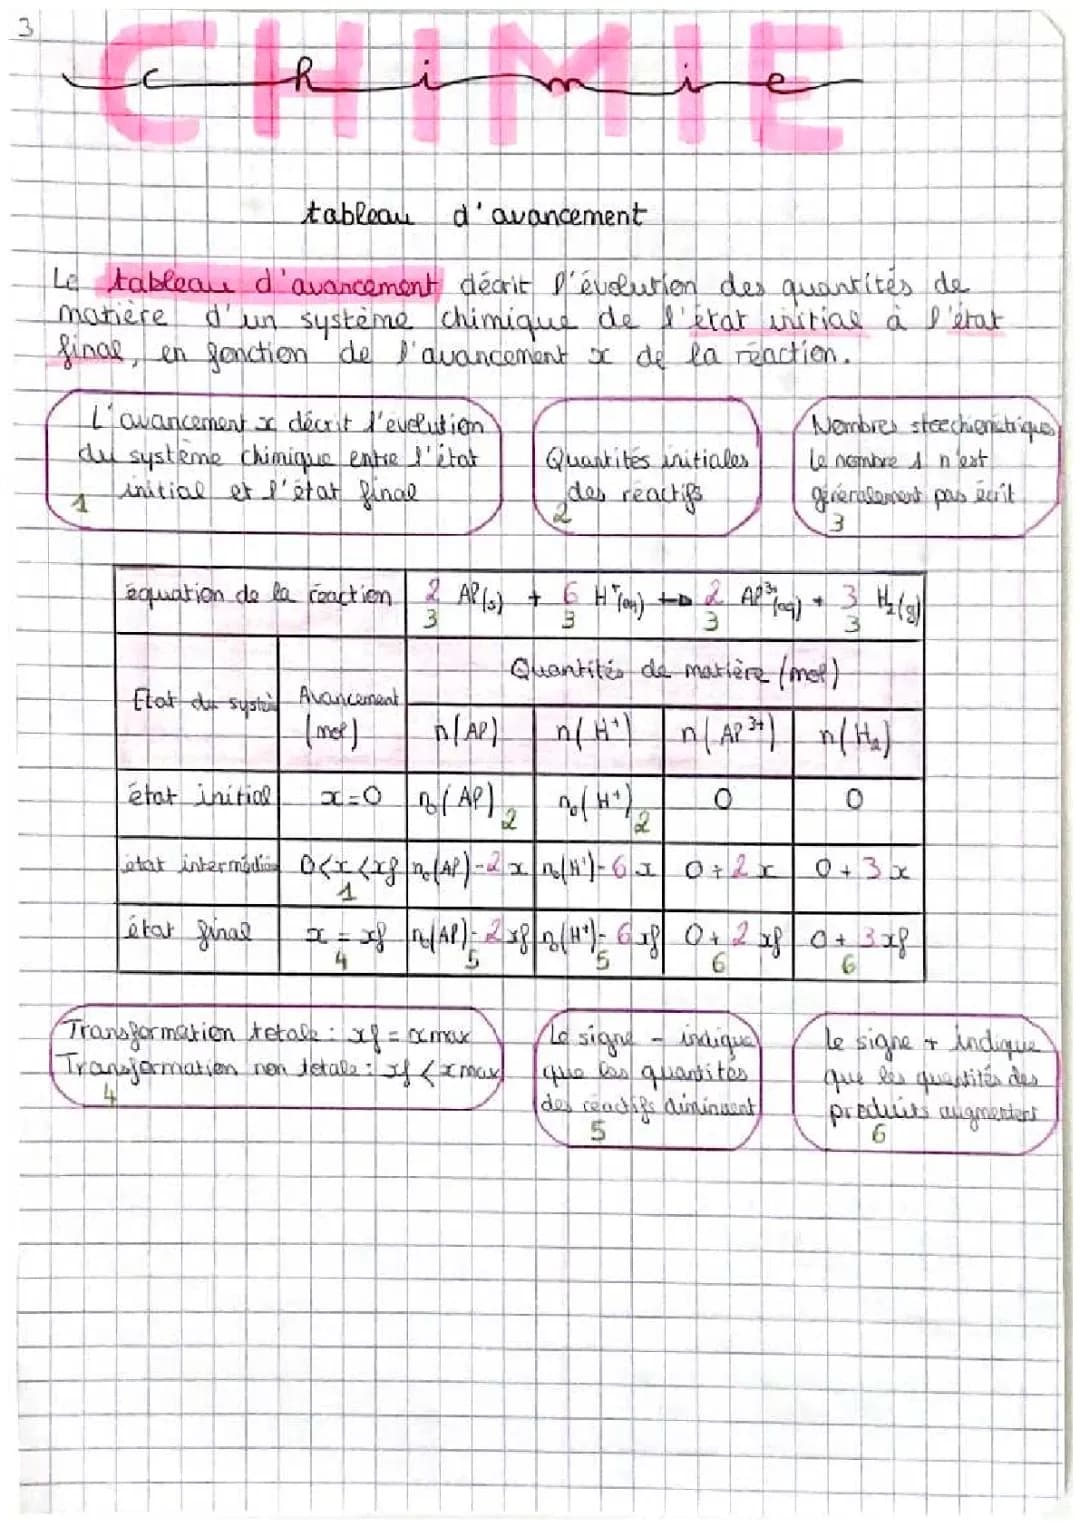 3
CHIMIE
chimie
tableau d'avancement
Le tableau d'avancement décrit l'évolution des quantités de
matière d'un système chimique de l'état initial à l'état
final, en fonction de l'avancement x de la réaction.
L'avancement x décrit l'évolution
du système chimique entre l'état
initial et l'état final
1
Quantités initiales
des réactifs
2
Nombres stoechiométriques
le nombre 1 n'est
généralement pas écrit
3
équation de la réaction 2 Al(s) + 6 H⁺(aq) → 2 Al³⁺(aq) + 3 H₂(g)
3 3 3 3
Quantités de matière (mol)
Etat du systè Avancement
(mol) n(Al) n(H⁺) n(Al³⁺) n(H₂)
état initial x=0 n₀(Al) 2 n₀(H⁺) 2 0 0
état intermédiai 0<x<xf n₀(Al)-2x n₀(H⁺)-6x 0+2x 0+3x
1
état final x = xf n₀(Al)-2xf n₀(H⁺)-6xf 0+2xf 0+3xf
4 5 5 6 6
Transformation totale : xf = xmax
Transformation non totale : xf < xmax
4
Le signe - indique
que les quantités
des réactifs diminuent
5
le signe + indique
que les quantités des
produits augmentent
6